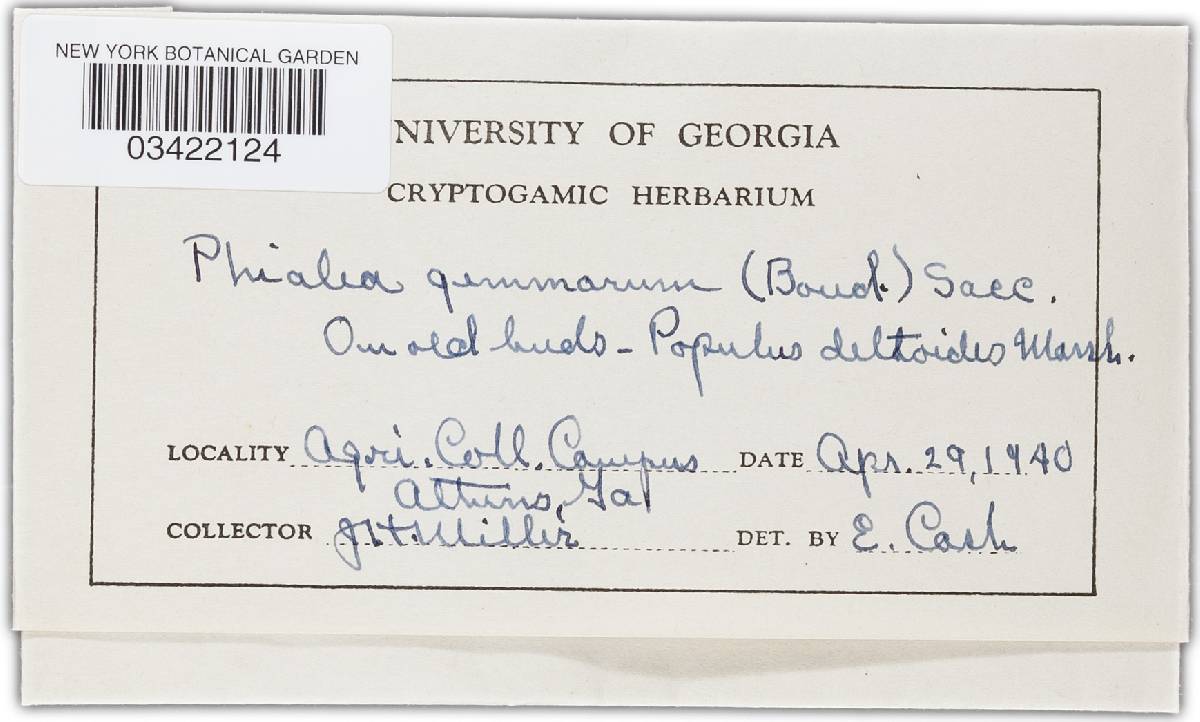 NEW YORK BOTANICAL GARDEN
03422124
NIVERSITY OF GEORGIA
CRYPTOGAMIC HERBARIUM
Phialea gemmarum (Boud.) Sacc.
On old buds - Populus deltoides Marsh.
LOCALITY Agri. Coll. Campus DATE Apr. 29, 1940
Athens, Ga
COLLECTOR J.H. Miller DET. BY E. Cash